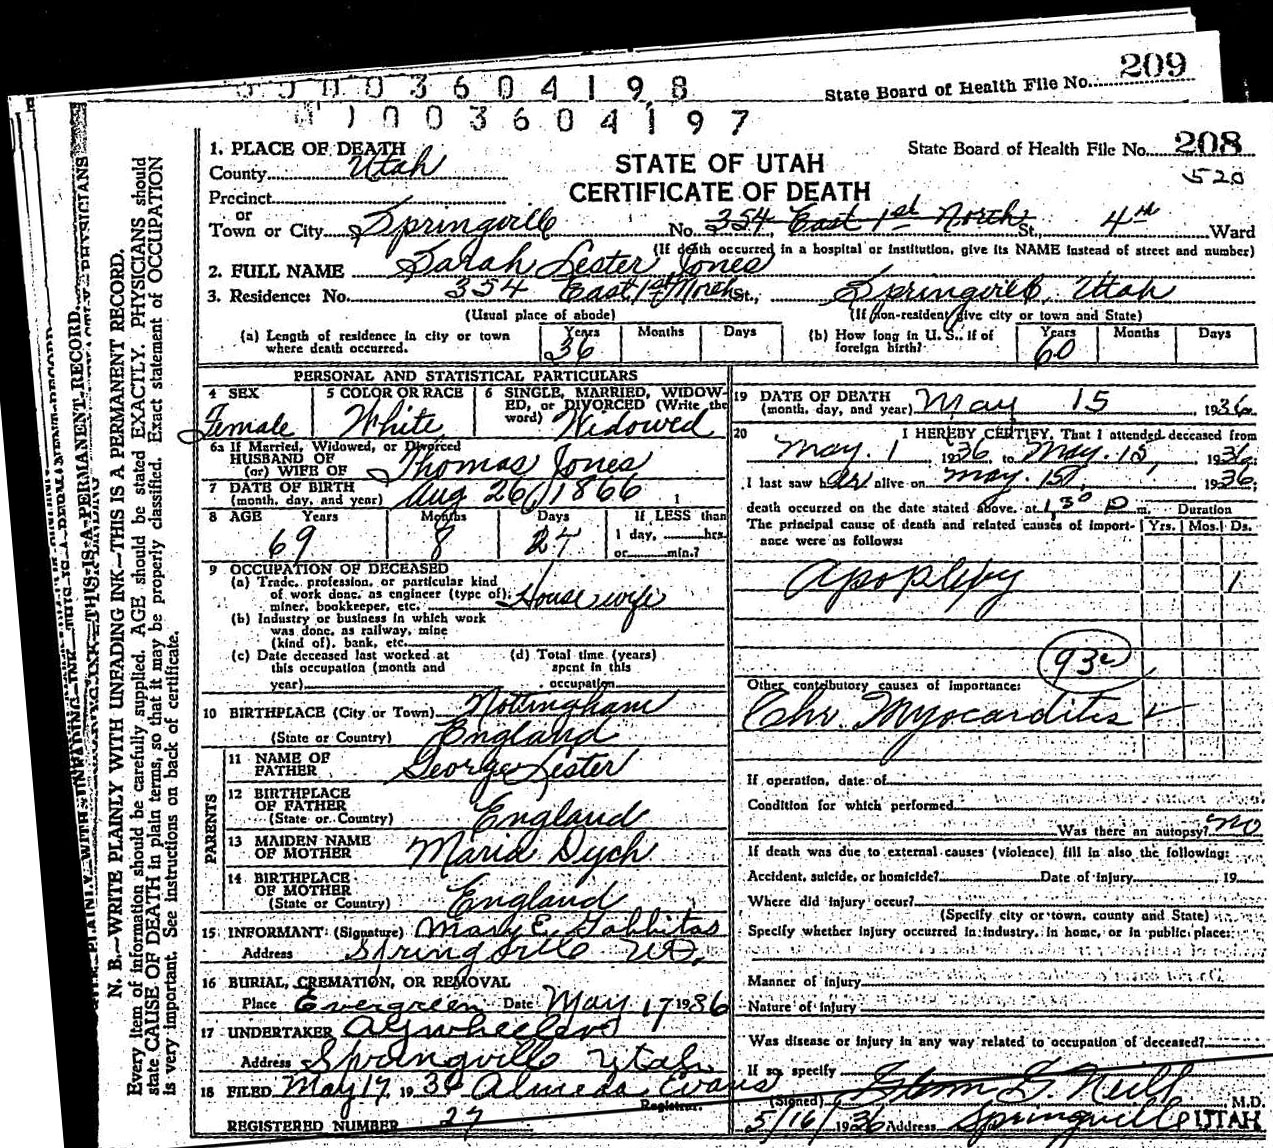 0003604198
State Board of Health File No. 209
003604197
1. PLACE OF DEATH
County Utah
STATE OF UTAH
CERTIFICATE OF DEATH
State Board of Health File No. 208
520
Precinct
or
Town or City Springville No. 354 East 1st North St., 4th Ward
(If death occurred in a hospital or institution, give its NAME instead of street and number)
2. FULL NAME Sarah Lester Jones
3. Residence: No. 354 East 1st North St., Springville, Utah
(Usual place of abode) (If non-resident give city or town and State)
(a) Length of residence in city or town where death occurred. Years 36 Months Days
(b) How long in U. S., if of foreign birth? Years 60 Months Days
PERSONAL AND STATISTICAL PARTICULARS
4 SEX Female
5 COLOR OR RACE White
6 SINGLE, MARRIED, WIDOWED, or DIVORCED (Write the word) Widowed
6a If Married, Widowed, or Divorced
HUSBAND OF
(or) WIFE OF Thomas Jones
7 DATE OF BIRTH
(month, day, and year) Aug 26, 1866
8 AGE Years 69 Months 8 Days 24 If LESS than 1 day, hrs. or min.?
9 OCCUPATION OF DECEASED
(a) Trade, profession, or particular kind
of work done, as engineer (type of),
miner, bookkeeper, etc. House wife
(b) Industry or business in which work
was done, as railway, mine
(kind of), bank, etc.
(c) Date deceased last worked at this occupation (month and year)
(d) Total time (years) spent in this occupation
10 BIRTHPLACE (City or Town) Nottingham
(State or Country) England
PARENTS
11 NAME OF FATHER George Lester
12 BIRTHPLACE OF FATHER
(State or Country) England
13 MAIDEN NAME OF MOTHER Maria Dych
14 BIRTHPLACE OF MOTHER
(State or Country) England
15 INFORMANT: (Signature) Mary E. Gabbitas
Address Springville Ut.
16 BURIAL, CREMATION, OR REMOVAL
Place Evergreen Date May 17 1936
17 UNDERTAKER A Y Wheeler
Address Springville Utah
18 FILED May 17, 1936 Almeda Evans
Registrar.
REGISTERED NUMBER 27
19 DATE OF DEATH
(month, day, and year) May 15, 1936
20 I HEREBY CERTIFY, That I attended deceased from
May. 1 1936 to May. 15, 1936;
I last saw her alive on May. 15, 1936;
death occurred on the date stated above, at 1:30 P m. Duration
The principal cause of death and related causes of importance were as follows: Yrs. Mos. Ds.
Apoplexy 1
93c
Other contributory causes of importance:
Chr. Myocarditis
If operation, date of
Condition for which performed
Was there an autopsy? no
If death was due to external causes (violence) fill in also the following:
Accident, suicide, or homicide? Date of injury 19
Where did injury occur?
(Specify city or town, county and State)
Specify whether injury occurred in industry, in home, or in public place:
Manner of injury
Nature of injury
Was disease or injury in any way related to occupation of deceased?
If so, specify
(Signed) Neill M.D.
5/16/1936 Address Springville UTAH
N. B.—WRITE PLAINLY WITH UNFADING INK—THIS IS A PERMANENT RECORD.
Every item of information should be carefully supplied. AGE should be stated EXACTLY. PHYSICIANS should
state CAUSE OF DEATH in plain terms, so that it may be properly classified. Exact statement of OCCUPATION
is very important. See instructions on back of certificate.